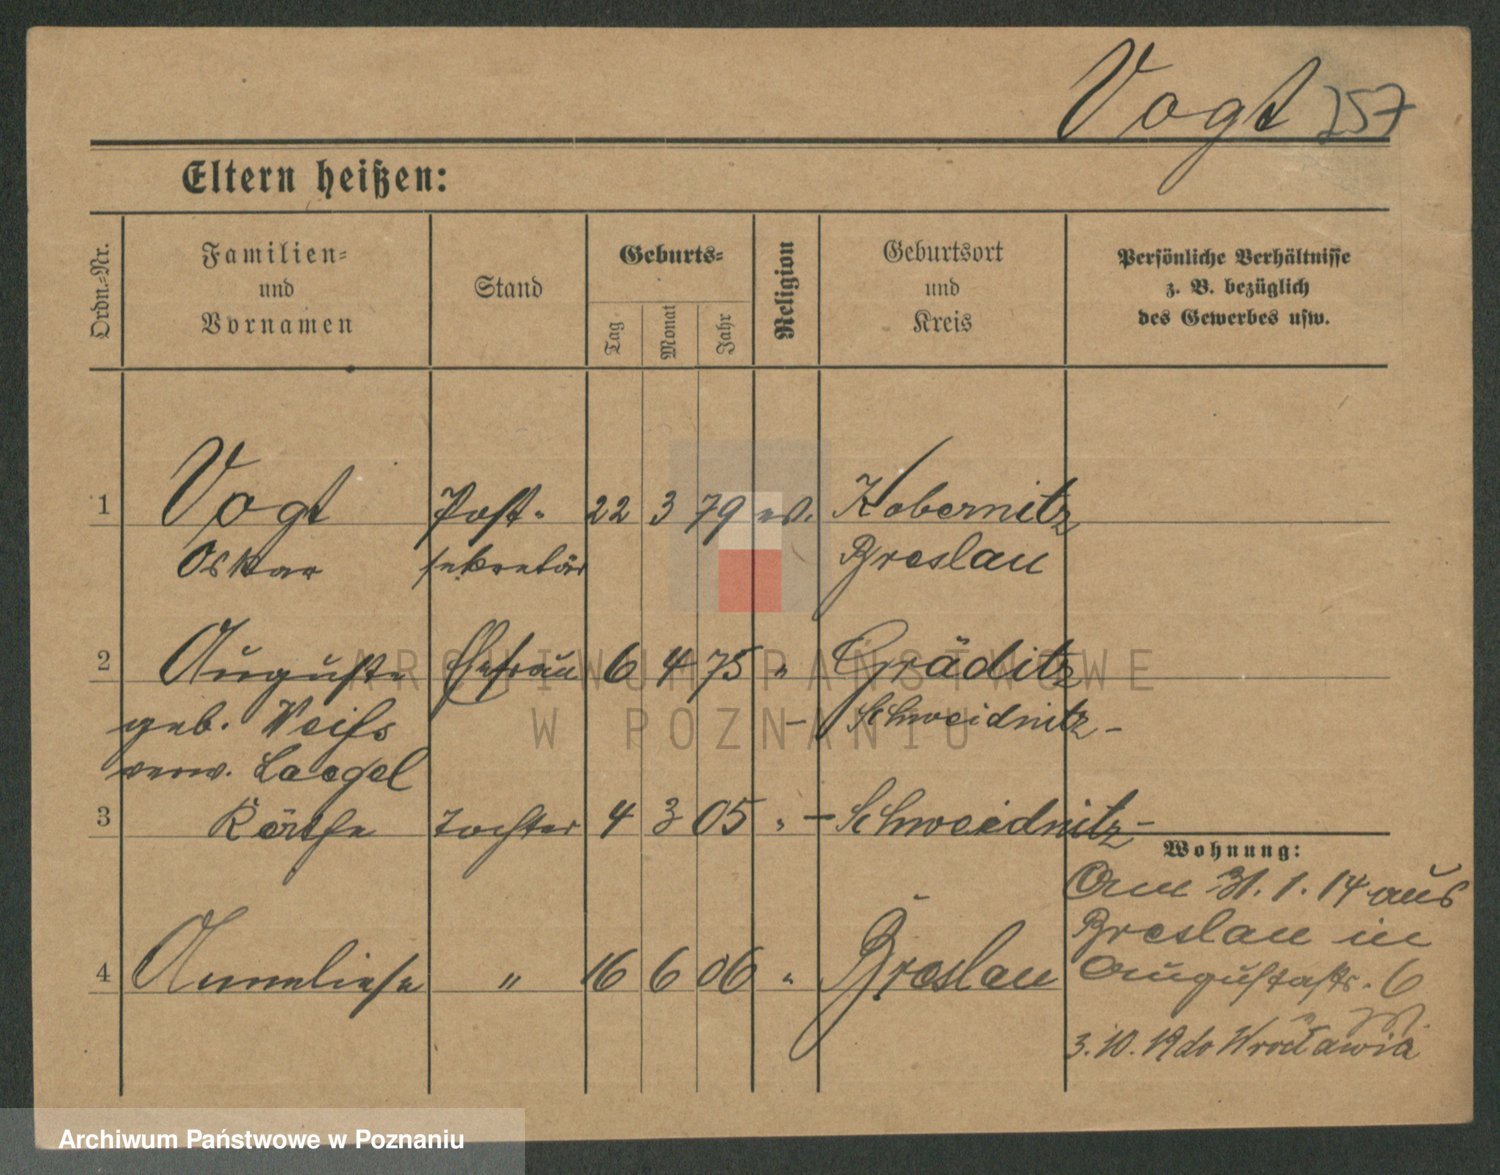 Vogt 257
Eltern heißen:
Ordn.-Nr.
Familien-
und
Vornamen
Stand
Geburts-
Tag
Monat
Jahr
Religion
Geburtsort
und
Kreis
Persönliche Verhältnisse
z. B. bezüglich
des Gewerbes usw.
1 Vogt Post- 22 3 79 ev. Kobernitz
Oskar sekretär Breslau
2 Auguste Ehefrau 6 4 75 " Gräditz
geb. Weiß - Schweidnitz -
verw. Laegel
3 Käthe Tochter 4 3 05 " - Schweidnitz -
Wohnung:
Am 31.1.14 aus
Breslau in
4 Anneliese " 16 6 06 " Breslau
Augustastr. 6
3.10.19 do Wrocławia
ARCHIWUM PAŃSTWOWE
W POZNANIU
Archiwum Państwowe w Poznaniu